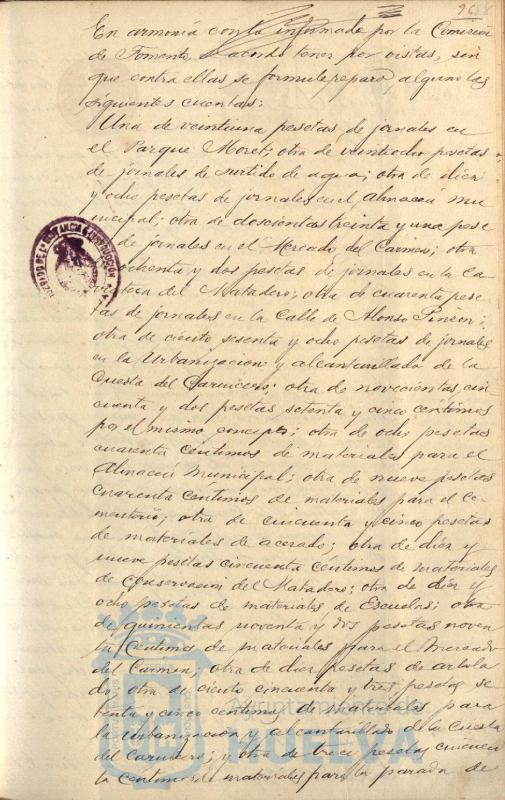 96
En armonía con lo informado por la Comisión
de Fomento, se acordó tener por vistas, sin
que contra ellas se formule reparo alguno las
siguientes cuentas:
Una de veintiuna pesetas de jornales en
el Parque Moret; otra de veintiocho pesetas
de jornales de surtido de agua; otra de diez
y ocho pesetas de jornales en el Almacén mu
nicipal; otra de doscientas treinta y una pese
de jornales en el Mercado del Carmen; otra
ochenta y dos pesetas de jornales en la Ca
del Matadero; otra de cuarenta pese
tas de jornales en la Calle de Alonso Pinzón;
otra de ciento sesenta y ocho pesetas de jornales
en la Urbanización y alcantarillado de la
Cuesta del Carnicero; otra de novecientas cin
cuenta y dos pesetas setenta y cinco céntimos
por el mismo concepto; otra de ocho pesetas
cuarenta céntimos de materiales para el
Almacén Municipal; otra de nueve pesetas
cuarenta céntimos de materiales para el Ce-
menterio; otra de cincuenta y cinco pesetas
de materiales de acerado; otra de diez y
nueve pesetas cincuenta céntimos de materiales
de Conservación del Matadero; otra de diez y
ocho pesetas de materiales de Escuelas; otra
de quinientas noventa y dos pesetas noven
ta céntimos de materiales para el Mercado
del Carmen; otra de diez pesetas de arbola
do, otra de ciento cincuenta y tres pesetas se
tenta y cinco céntimos de materiales para
la Urbanización y alcantarillado de la Cuesta
del Carnicero; y otra de trece pesetas cincuen
ta céntimos de materiales para la parada de
Ayuntamiento de
HUELVA